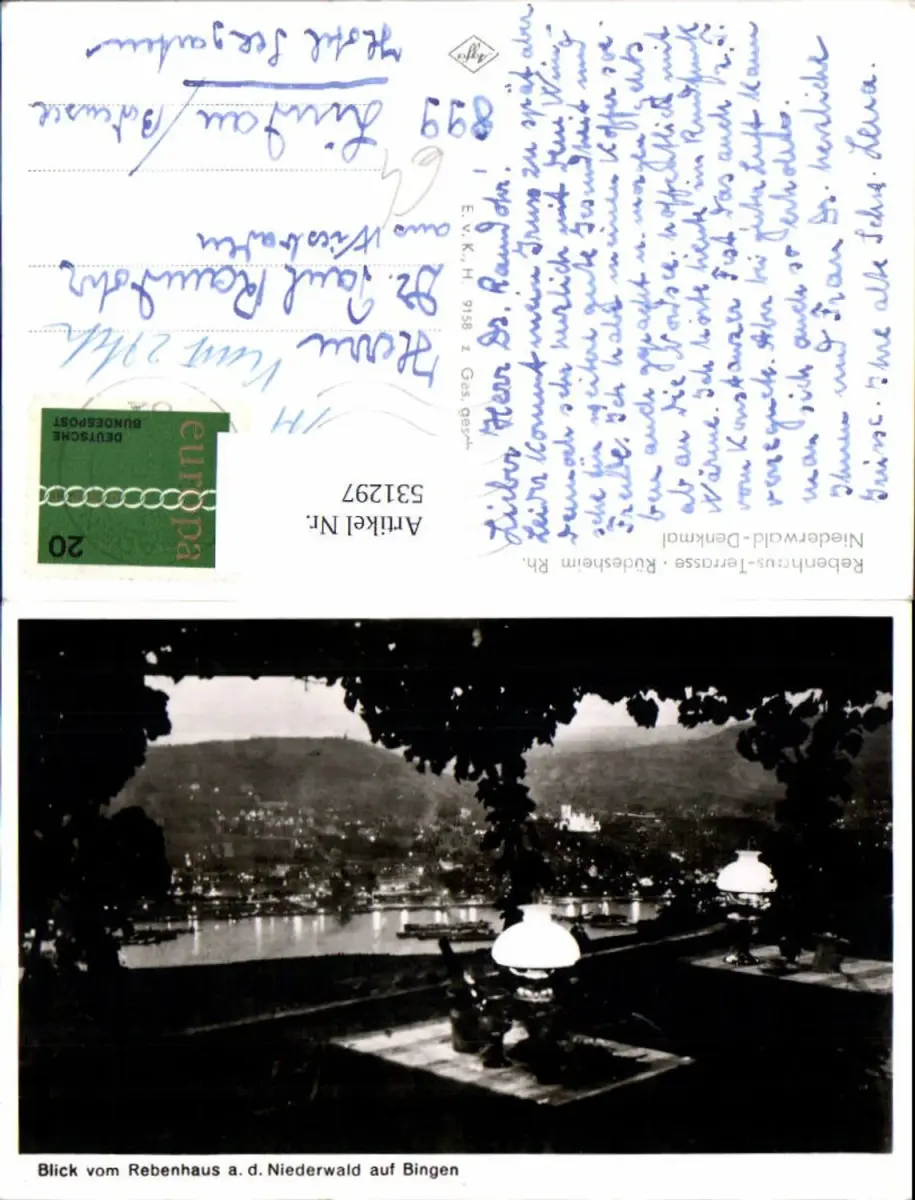 Rebenhaus-Terrasse · Rüdesheim Rh.
Niederwald-Denkmal
Lieber Herr Dr. Ramdohr.
Leider kommt mein Gruss zu spät aber
dennoch sehr herzlich mit dem
für weitere gute Gesundheit und
Freude. Ich habe meinen Koffer so
eben auch gepackt u. morgen geht's
ab an die Nordsee. hoffentlich mit
Wärme. Ich hörte heute im Rundfunk
vom Konstanzer Fest, das auch
verregnete. Aber bei guter Luft kann
man sich auch so erholen.
Ihnen und Frau Dr. herzliche
Grüsse. Ihre alte Schw. Lena.
E. v. K., H. 9158 z Ges. gesch.
Agfa
europa
20
DEUTSCHE
BUNDESPOST
Artikel Nr.
531297
Herrn
Dr. Paul Ramdohr
aus Wiesbaden
899 Lindau / Bodensee
Hotel Seegarten
Blick vom Rebenhaus a. d. Niederwald auf Bingen